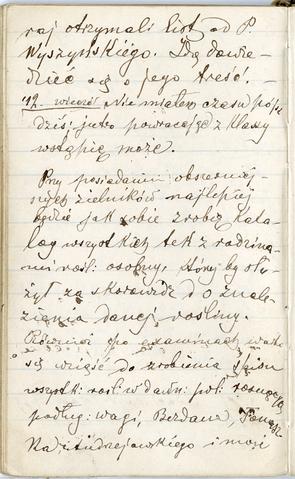 raj otrzymali list od P.
Wyszyńskiego. Idę dowie-
dzieć się o jego treść. –
12. wieczór Nie miałem czasu pójść
dziś; jutro powracając z klasy
wstąpię może.
Przy posiadaniu obszerniej-
szych zielników najlepiej
będzie jak sobie zrobię kata-
log wszystkich tek z rodzina-
mi rośl: osobny, który by słu-
żył za skorowidz do znale-
zienia danej rośliny.
Również po examinach
się wziąść do zrobienia Spisu
wszystk: rośl: w dawn: pol:
podług: wagi, Bezdana,
i Andrzejowskiego i może